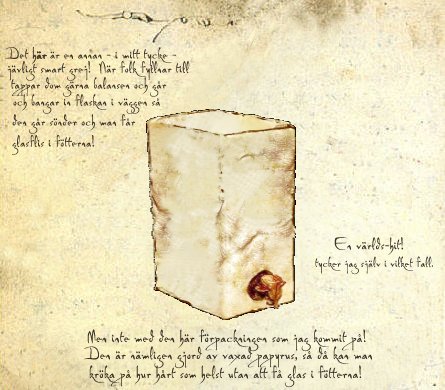 Det här är en annan - i mitt tycke -
jävligt smart grej! När folk fyllnar till
tappar dom gärna balansen och går
och bangar in flaskan i väggen så
den går sönder och man får
glasflis i fötterna!
En världs-hit!
tycker jag själv i vilket fall.
Men inte med den här förpackningen som jag kommit på!
Den är nämligen gjord av vaxad papyrus, så då kan man
kröka på hur hårt som helst utan att få glas i fötterna!